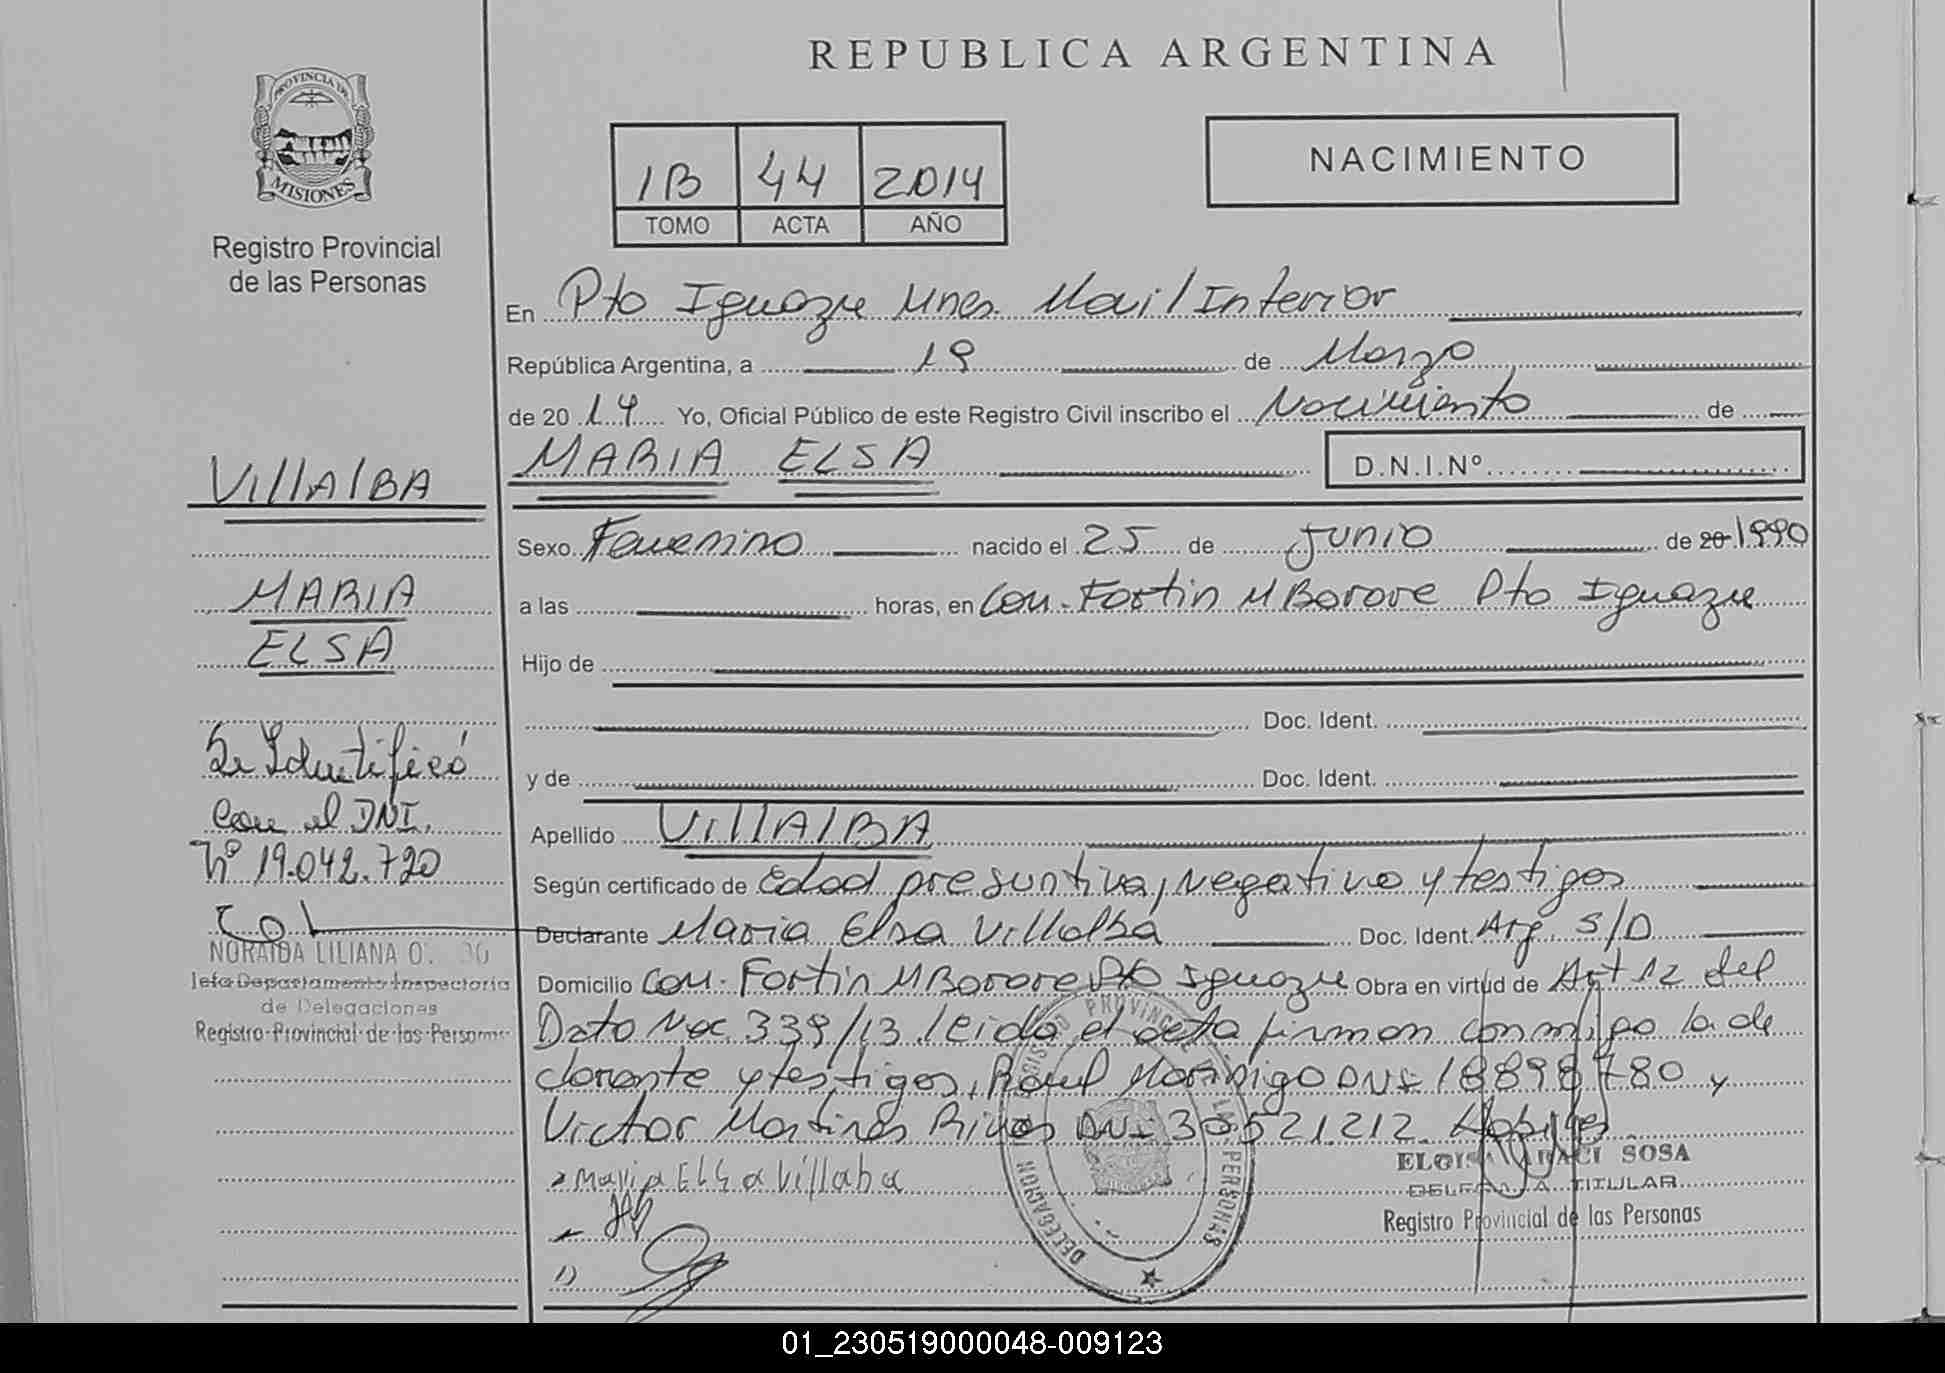 REPUBLICA ARGENTINA
PROVINCIA DE
MISIONES
Registro Provincial
de las Personas
1B 44 2014
TOMO ACTA AÑO
NACIMIENTO
En Pto Iguazu Mnes. Movil Interior
República Argentina, a 19 de Marzo
de 2014 Yo, Oficial Público de este Registro Civil inscribo el Nacimiento de
MARIA ELSA D.N.I.Nº
VillAlBA
MARIA
ELSA
Se Identificó
Con el DNI.
Nº 19.042.720
NORAIDA LILIANA
Jefa Departamento Inspectoria
de Delegaciones
Registro Provincial de las Personas
Sexo Femenino nacido el 25 de Junio de 20 1990
a las horas, en Com. Fortin M Borore Pto Iguazu
Hijo de
Doc. Ident.
y de Doc. Ident.
Apellido VillAlBA
Según certificado de Edad presuntiva, Negativo y testigos
Declarante Maria Elsa Villalba Doc. Ident. Arg. S/D
Domicilio Com. Fortin M Borore Pto Iguazu Obra en virtud de Art 12 del
Dcto Nac 339/13. leida el acta firman conmigo la de
clarante y testigos, Raul Morinigo DNI 18898780 y
Victor Martines Rivas DNI 33521212. Habiles
Maria ELSa Villaba
1)
REGISTRO PROVINCIAL DE LAS PERSONAS
DELEGACION
SOSA
TITULAR
Registro Provincial de las Personas
01_230519000048-009123